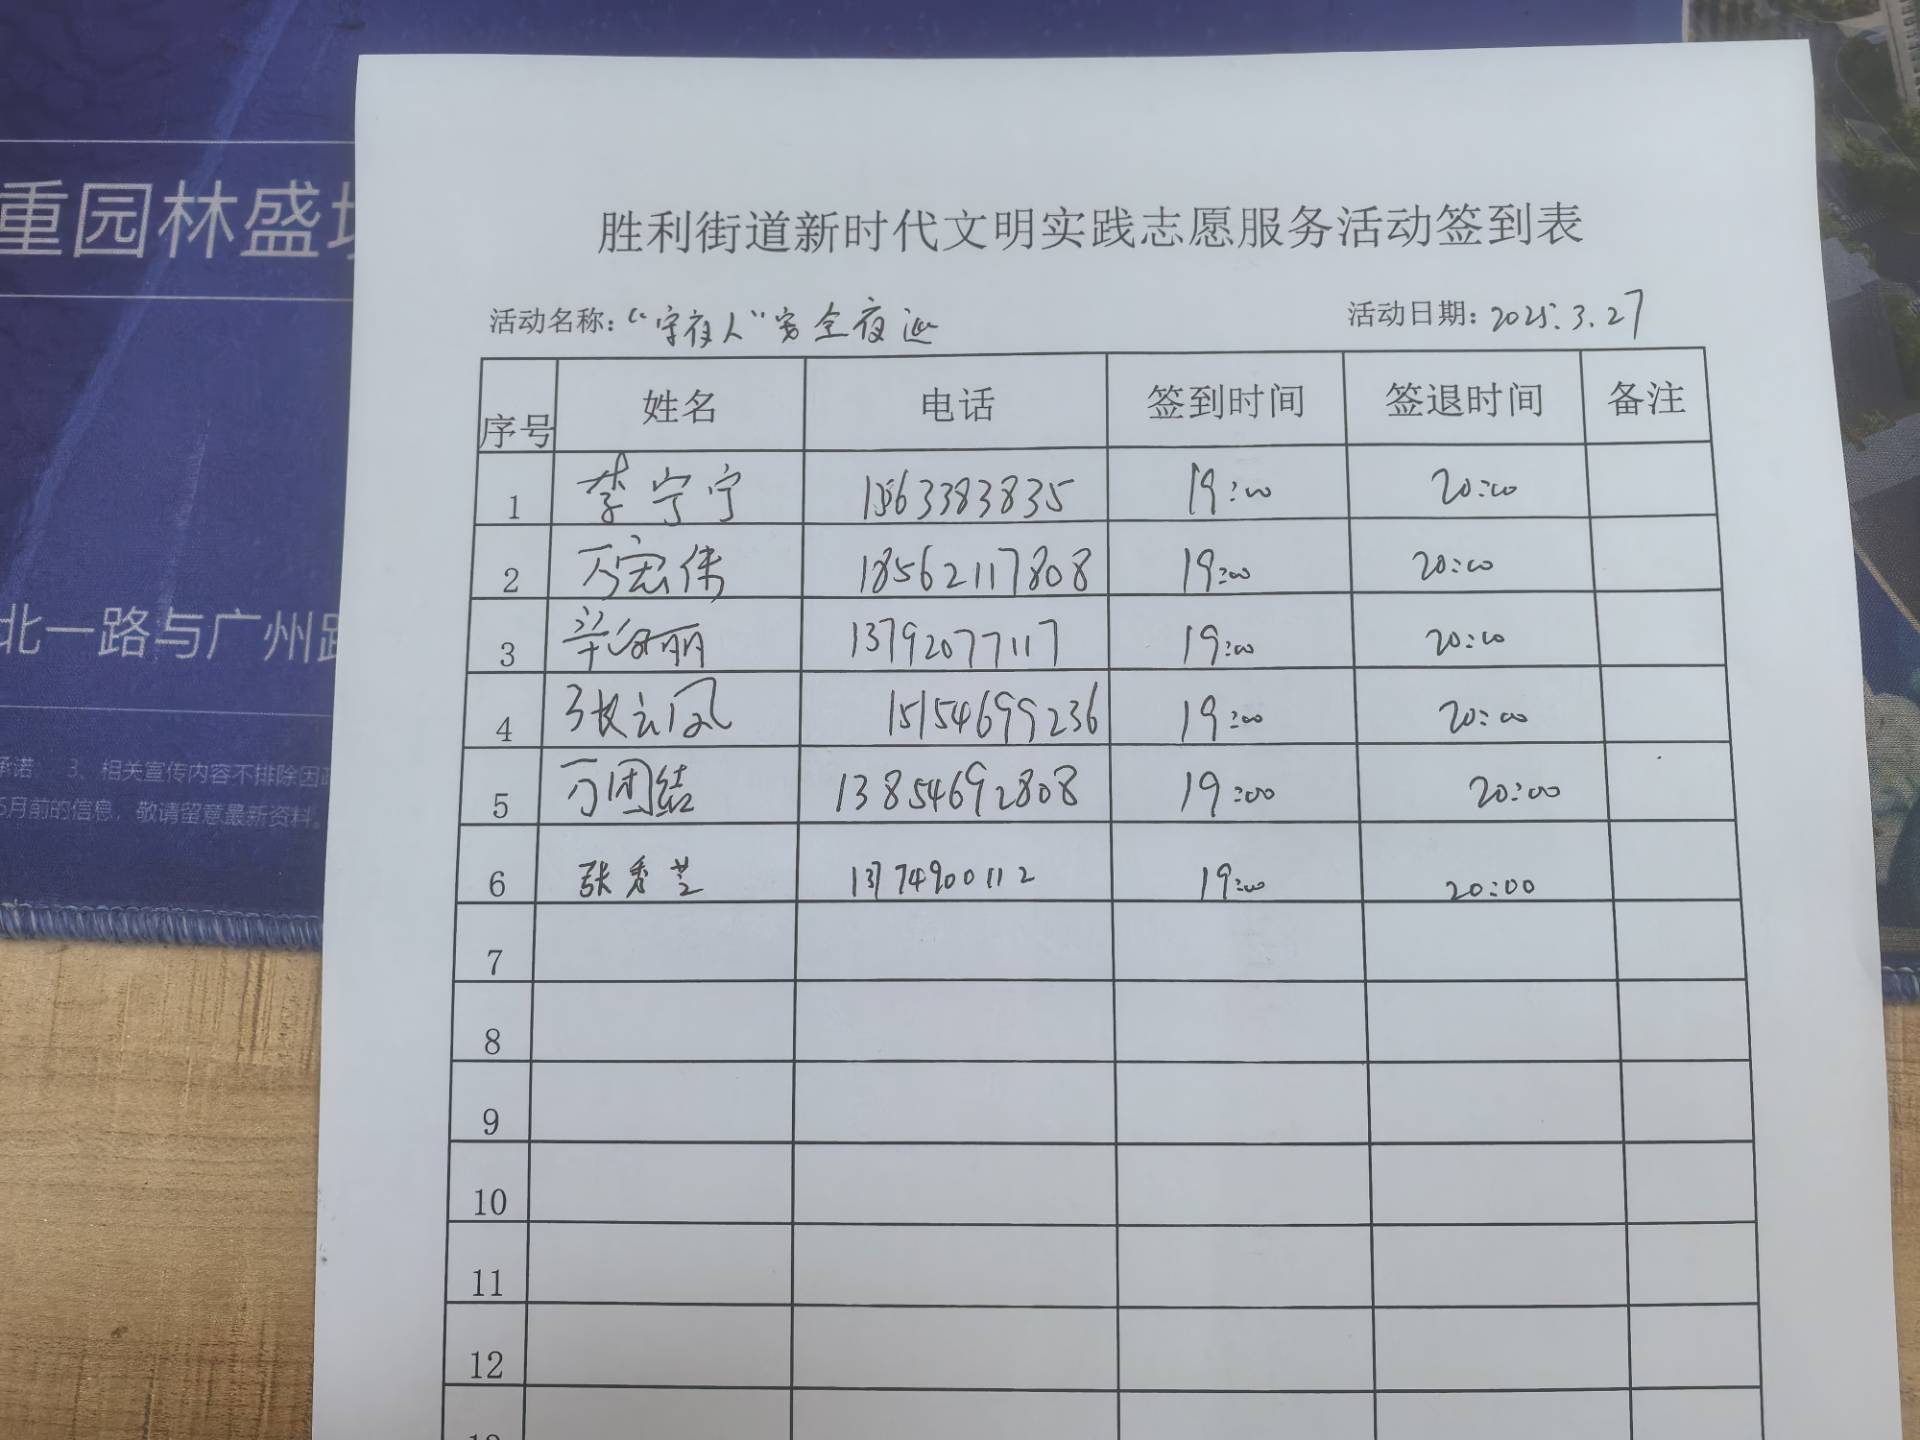 重园林盛
北一路与广州路
承诺: 3、相关宣传内容不排除因
5月前的信息，敬请留意最新资料。
胜利街道新时代文明实践志愿服务活动签到表
活动名称：“守夜人”安全夜巡 活动日期：2025.3.27
序号 姓名 电话 签到时间 签退时间 备注
1 李宁宁 1563383835 19:00 20:00
2 万宏伟 18562117808 19:00 20:00
3 丽 13792077117 19:00 20:00
4 张云凤 15154699236 19:00 20:00
5 万团结 13854692808 19:00 20:00
6 张秀芝 1374900112 19:00 20:00
7
8
9
10
11
12